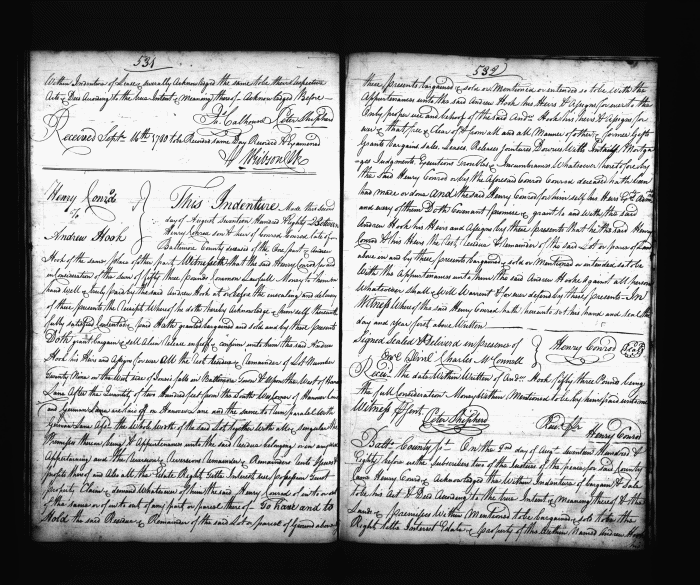 531
Within Indenture of Lease severally Acknowledged the same to be their respective
Acts & Deed According to the true Intent & Meaning thereof Acknowledged Before
Js. Calhoun Peter Shepherd
Received Sept. 14th 1780 to be Recorded same Day Recorded & Examined
W Gibson Clk
Henry Conrod
To
Andrew Hook
This Indenture Made this second
day of August Seventeen Hundred & Eighty Between
Henry Conrod son & heir of Conrod Conrod late of
Baltimore County deceased of the One part & Andrew
Hook of the same place of the other part Witnesseth that the said Henry Conrod for and
in consideration of the Sum of fifty three pounds Common Lawfull Money to them in
hand well & truly paid by the said Andrew Hook at or before the ensealing and delivery
of these presents the Receipt Whereof he doth hereby Acknowledge & himself therewith
fully satisfied contented & paid Hath granted bargained and sold and by these presents
Doth grant bargain sell Alien release enfeoff & confirm unto him the said Andrew
Hook his Heirs and Assigns for ever All the rest residue & Remainder of Lot Number
Twenty Nine on the West side of in Baltimore Town & upon the West of those
Lane After the Quantity of two Hundred feet from the South of Hanover Lane
and German Lane are laid off on Hanover Lane and the same to run parallel with
German Lane Apt the Whole Width of the said Lot together With All & singular the
Premisses thereon being & Appertenances unto the said residue belonging or in any wise
Appertaining and the Reversion Reversions Remainder & Remainders Rents Issues &
profits thereof and Also All the Estate Right Title Interest use possession Trust
property Claim & demand Whatsoever of him the said Henry Conrod of in to or out
of the same or of in to out of any part or parcel thereof To have and to
Hold the said Residue & Remainder of the said Lot or parcel of Ground above
532
these presents bargained & sold or Mentioned or intended so to be With the
Appertenances unto the said Andrew Hook his Heirs & Assigns for ever to the
Only proper use and behoof of the said Andw. Hook his heirs & Assigns for
ever & that free & Clear of & from all and all Manner of other & former Gifts
Grants bargains Sales Leases Releases Jointures Dowers Wills Intails Mortga
ges Judgments Executions Troubles & Incumbrances Whatsoever heretofore by
the said Henry Conrod or by the Aforesaid Conrod Conrod deceased hath been
had made or done And the said Henry Conrod for himself his Heirs Exrs. & Admrs.
and every of them Doth Covenant promise & grant to and with the said
Andrew Hook his Heirs and Assigns by these presents that he the said Henry
Conrod & his Heirs the Rest Residue & Remainder of the said Lot or parcel of Land
above in and by these presents bargained & sold or Mentioned or intended so to be
With the Appertenances unto him the said Andrew Hook & against all persons
Whatsoever shall & Will Warrent & for ever defend by these presents In
Witness Whereof the said Henry Conrod hath hereunto set his hand and seal the
day and year first above Written
Signed Sealed & Deliverd in presence of
Charles McConnell
Henry Conrod Seal
Recd. the date Within Written of Andw. Hook fifty three Pound being
the full Consideration Money Within Mentioned to be by him paid unto me
Witness
Peter Shepherd
Recd. Per
Henry Conrod
Balto. County Sct. On the 2nd day of Augt. Seventeen Hundred &
Eighty before us the subscribers two of the Justices of the peace for said County
came Henry Conrod & Acknowledged the Within Indenture of bargain & Sale
to be his Act & Deed According to the true Intent & Meaning thereof & the
Land & premisses Within Mentioned to be bargained & sold to be the
Right Title Interest Estate & property of the Within Named Andrew Hook